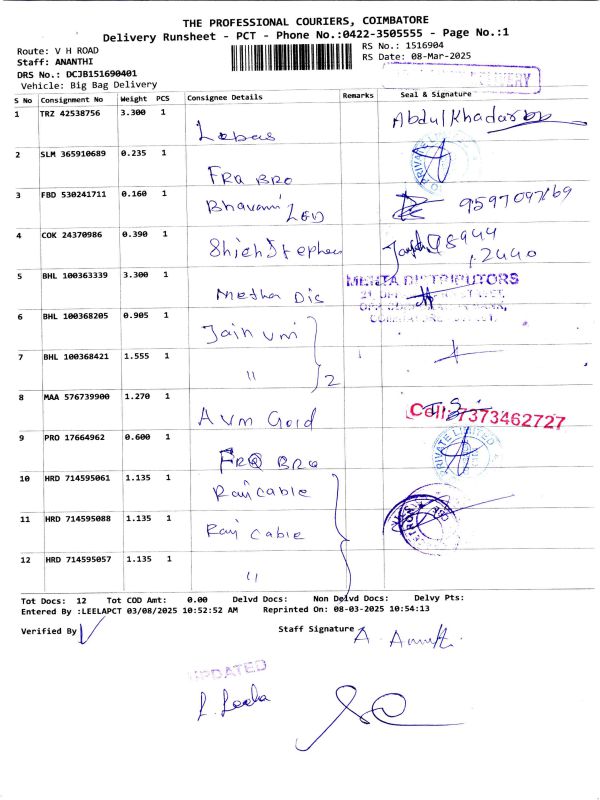 THE PROFESSIONAL COURIERS, COIMBATORE
Delivery Runsheet - PCT - Phone No.:0422-3505555 - Page No.:1
Route: V H ROAD
RS No.: 1516904
Staff: ANANTHI
RS Date: 08-Mar-2025
DRS No.: DCJB151690401
Vehicle: Big Bag Delivery
DELIVERY
S No Consignment No Weight PCS Consignee Details Remarks Seal & Signature
1 TRZ 42538756 3.300 1 Lobas Abdul Khadar
2 SLM 365910689 0.235 1 FRQ BRO
PRIVATE
3 FBD 530241711 0.160 1 Bhavani LED
4 COK 24370986 0.390 1 Shieh Stephen Joseph
5 BHL 100363339 3.300 1 Metha Dis MEHTA DISTRIBUTORS
6 BHL 100368205 0.905 1 Jain uni
7 BHL 100368421 1.555 1 " 2
8 MAA 576739900 1.270 1 AVM Gold Cell: 7373462727
9 PRO 17664962 0.600 1 FRQ BRO PRIVATE LIMITED
10 HRD 714595061 1.135 1 Raj cable
11 HRD 714595088 1.135 1 Raj cable
12 HRD 714595057 1.135 1 "
Tot Docs: 12 Tot COD Amt: 0.00 Delvd Docs: Non Delvd Docs: Delvy Pts:
Entered By :LEELAPCT 03/08/2025 10:52:52 AM Reprinted On: 08-03-2025 10:54:13
Verified By
Staff Signature A.
UPDATED
L. Leela